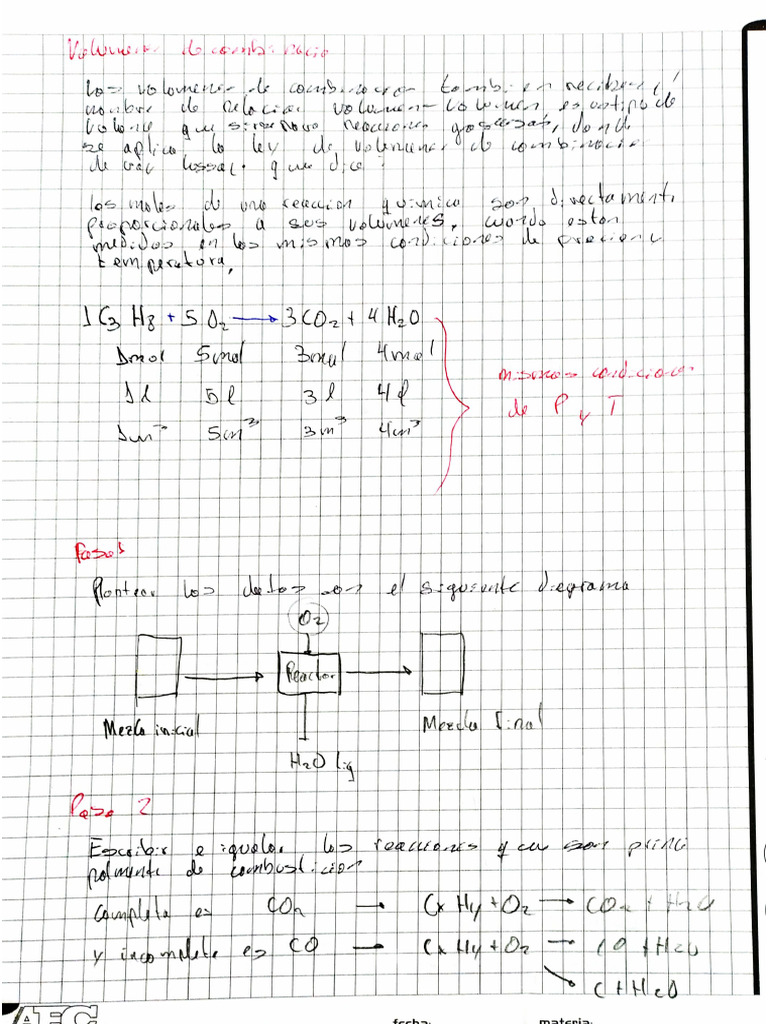 Volumenes de combinacio
Los volumenes de combinacion tambien reciben el
nombre de relacion volumen-volumen, es un tipo de
que sirve para reacciones gaseosas, donde
se aplica la ley de volumenes de combinacion
de Gay Lussac, que dice:
Los moles de una reaccion quimica son directament
proporcionales a sus volumenes, cuando estan
medidos en las mismas condiciones de presion y
temperatura,
1 C3 H8 + 5 O2 → 3 CO2 + 4 H2O
1mol 5mol 3mol 4mol
1l 5l 3l 4l
1cm3 5cm3 3cm3 4cm3
mismas condiciones
de P y T
Paso1
Plantear los datos en el siguiente diagrama
O2
Reactor
Mezcla inicial
Mezcla final
H2O liq
Paso 2
Escribir e igualar las reacciones que son princi
palmente de combustion
Completa es CO2 → Cx Hy + O2 → CO2 + H2O
y incompleta es CO → Cx Hy + O2 → CO + H2O
C + H2O
AEC
fecha: materia: